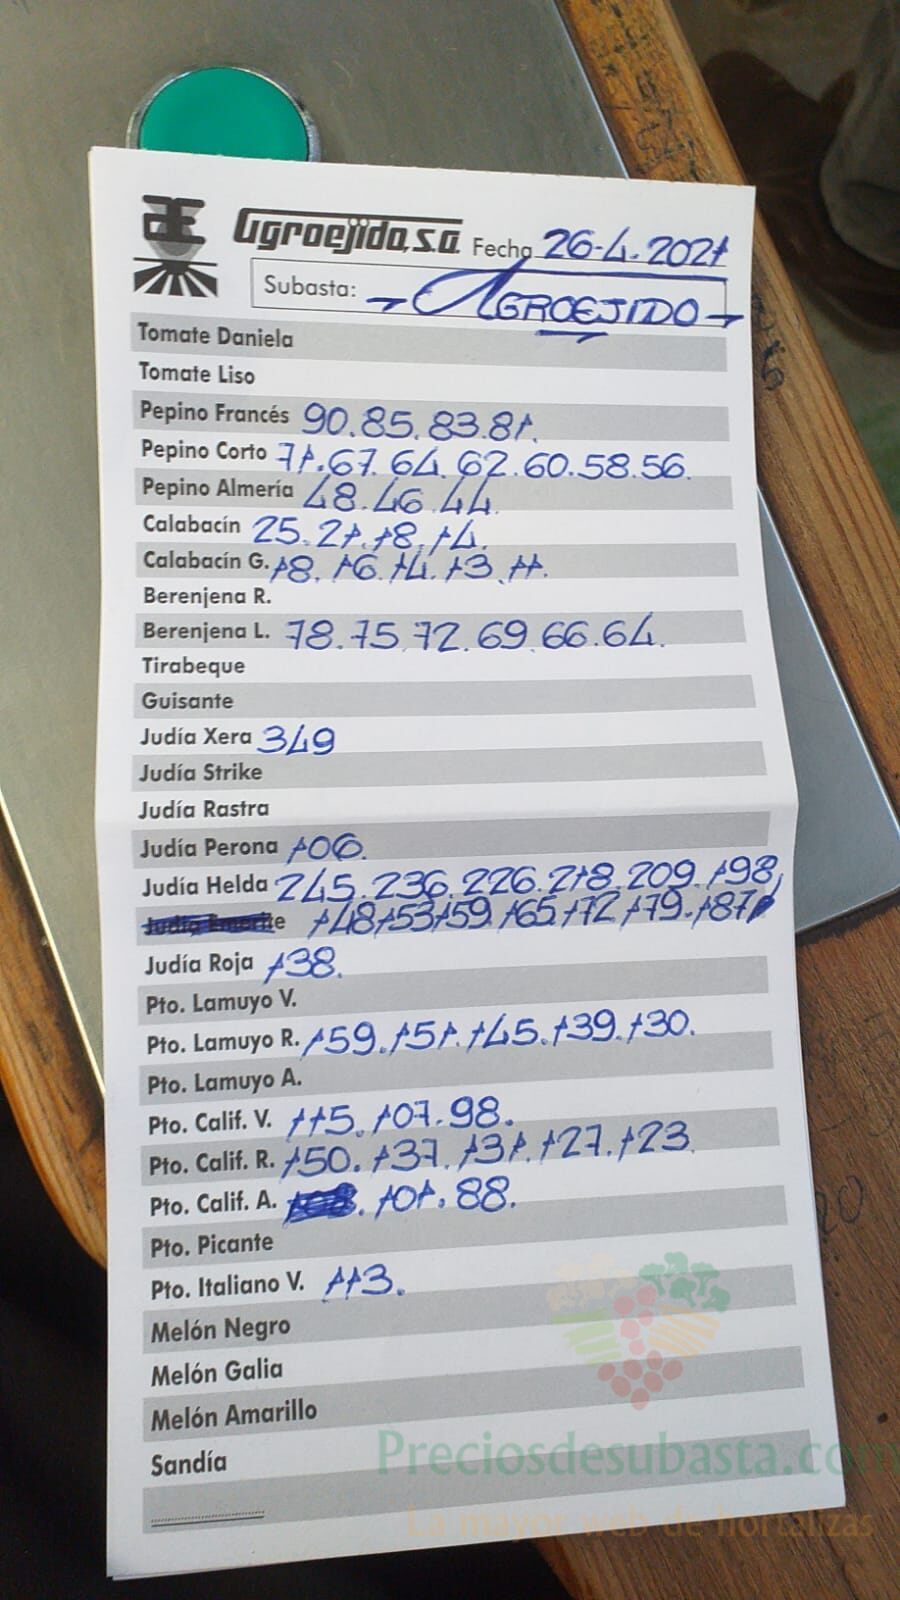 Agroejido, s.a. Fecha 26-4.2021
Subasta: AGROEJIDO
Tomate Daniela
Tomate Liso
Pepino Francés 90.85.83.81.
Pepino Corto 71.67.64.62.60.58.56.
Pepino Almería 48.46.44.
Calabacín 25.21.18.14.
Calabacín G. 18.16.14.13.11.
Berenjena R.
Berenjena L. 78.75.72.69.66.64.
Tirabeque
Guisante
Judía Xera 349
Judía Strike
Judía Rastra
Judía Perona 106.
Judía Helda 245.236.226.218.209.198,
Judía Emerite 148,153,159.165.172.179.187
Judía Roja 138.
Pto. Lamuyo V.
Pto. Lamuyo R. 159.151.145.139.130.
Pto. Lamuyo A.
Pto. Calif. V. 115.107.98.
Pto. Calif. R. 150.137.131.127.123.
Pto. Calif. A. . 101.88.
Pto. Picante
Pto. Italiano V. 113.
Melón Negro
Melón Galia
Melón Amarillo
Sandía
Preciosdesubasta.com
La mayor web de hortalizas